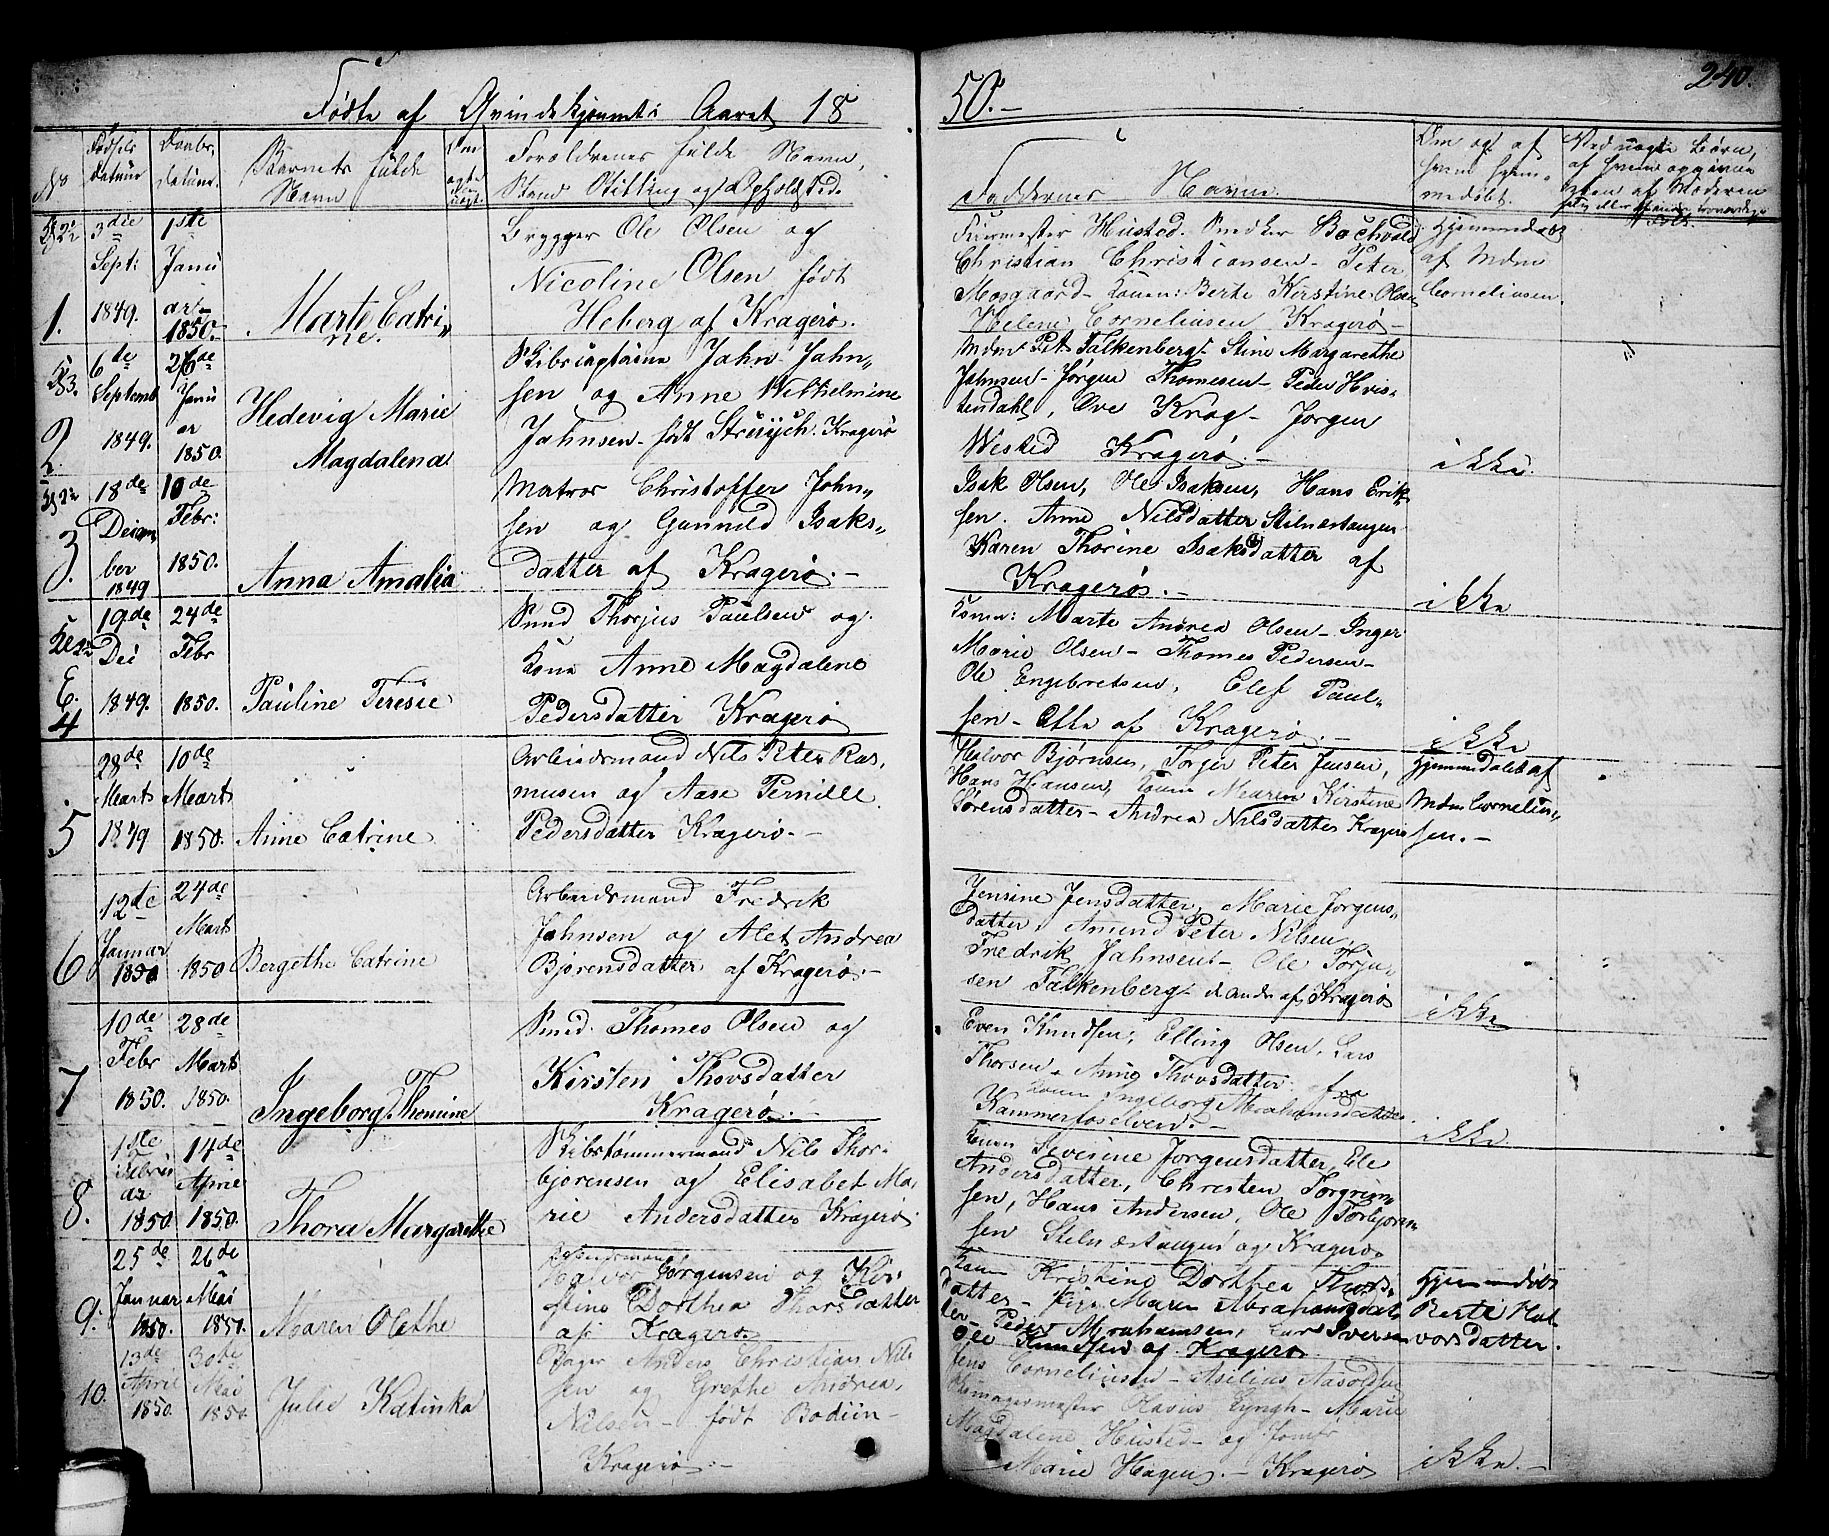 Födte af Qvindekjønnet i Aaret 18
50.-
240.
No
Fødsels datum
Daabs, datum.
Barnets fulde Navn
Om ægte eller uægte
Forældrenes fulde Navn, Stand Stilling og Opholdssted.
Faddernes Navne
Om og af hvem hjemmedøbt.
1.
3die Sept: 1849.
1ste Januar 1850.
Marte Catrine.
Brygger Ole Olsen og
Nicoline Olsen født
Heberg af Kragerø.
Christian Christiansen - Peter
Mosgaard - Konen: Berte Kirstine Olsen
Helene Corneliusen Kragerø -
Hjemmedøbt
af Mdm
Corneliusen.
2.
6te Septemb 1849.
26de Januar 1850.
Hedevig Marie
Magdalena
Skibscaptaine Jahn Jahn-
sen og Anne Wilhelmine
Jahnsen - født Struych. Kragerø
Mdm Pet. Falkenberg - Stine Margarethe
Jahnsen - Jørgen Thomesen - Peder Hvis-
tendahl, Ove Krog - Jørgen
Wested Kragerø. -
ikke.
3.
18de December 1849
10de Febr: 1850.
Anna Amalia
Matros Christoffer John-
sen og Gunnild Isaks-
datter af Kragerø. -
Isak Olsen, Ole Isaksen, Hans Erik-
sen. Anne Nilsdatter Stilnæstangen
Karen Thorine Isaksdatter af
Kragerø. -
ikke
4
19de Dec 1849.
24de Febr 1850.
Pauline Teresie
Smed Thorjus Paulsen og
Kone Anne Magdalene
Pedersdatter Kragerø
Konen: Marte Andrea Olsen - Inger
Marie Olsen - Thomes Pedersen -
Ole Engebretsen, Elef Paul-
sen - Alle af Kragerø. -
ikke
5
28de Marts 1849
10de Marts 1850.
Anne Catrine
Arbeidsmand Nils Peter Ras-
musen og Aase Pernille
Pedersdatter Kragerø. -
Halvor Bjørnsen, Torger Peter Jensen,
Hans Hansen, Konen Maren Kirstine
Sørensdatter - Andrea Nilsdatter Kragerø
Hjemmedøbt af
Mdm Cornelius-
sen. -
6
12te Januar 1850
24de Marts 1850
Bergethe Catrine
Arbeidsmand Fredrik
Jahnsen og Alet Andrea
Bjørensdatter af Kragerø. -
Jensine Jensdatter, Marie Jørgens-
datter, Amund Peter Nilsen,
Fredrik Jahnsen - Ole Torju-
sen Falkenberg - de andre af Kragerø
ikke
7
10de Febr 1850.
28de Marts 1850.
Ingeborg Themine
Smed. Thomes Olsen og
Kirsten Thovsdatter
Kragerø. -
Even Knudsen, Elling Olsen, Lars
Thorsen, Anne Thovsdatter fra
Konen Ingeborg Abrahamsdatter
Kammerfoselven. -
ikke
8.
1ste Februar 1850
14de April 1850.
Thora Margarethe
Skibstømmermand Nils Thor-
bjørensen og Elisabet Ma-
rie Andersdatter Kragerø
Konen Severine Jørgensdatter, Ele
Andersdatter, Christen Torgrim-
sen, Hans Andersen, Ole Torbjøren-
sen Stilnæstangen og Kragerø.
9.
25de Januar 1850.
26de Mai 1850.
Maren Olethe
Arbeidsmand
Halvor Jørgensen og Kir-
stine Dorthea Thorsdatter
af Kragerø.
Konen Kristine Dorthea Thors-
datter - Pige Maren Abrahamsdat-
ter - Peder Abrahamsen, Lars Iversen
Ole Knudsen af Kragerø
Hjemmedøbt
Berte Hal-
vorsdatter.
10.
13de April 1850.
30te Mai 1850
Julie Katinka
Bager Anders Christian Nil-
sen og Grethe Andrea
Nilsen - født Bodiin -
Kragerø. -
Jens Corneliussen - Aselius Aasoldsen
Marie
Magdalene Husted - og Jomfr
Marie Hagen. - Kragerø
ikke. -